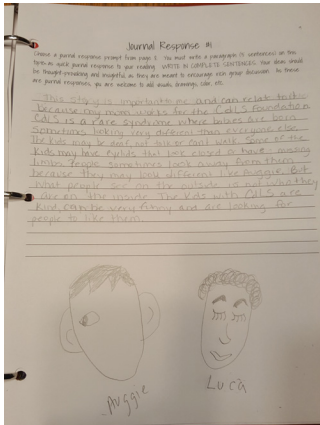 Journal Response #1
Choose a journal response prompt from page 3. You must write a paragraph (5 sentences) on this
typed as quick journal response to your reading. WRITE IN COMPLETE SENTENCES. Your ideas should
be thought-provoking and insightful as they are meant to encourage rich group discussion. As these
are journal responses, you are welcome to add visuals, drawings, color, etc.
This story is important to me and can relate to it
because my mom works for the CdLS Foundation
CdLS is a rare syndrome where babies are born
sometimes looking very different than everyone else.
The kids may be deaf, not talk or cant walk. Some of the
kids may have eyelids that are closed or have missing
limbs. People sometimes look away from them
because they may look different like Auggie. But
what people see on the outside is not who they
are on the inside. The kids with CdLS are
kind, can be very funny and are looking for
people to like them.
Auggie
Luca